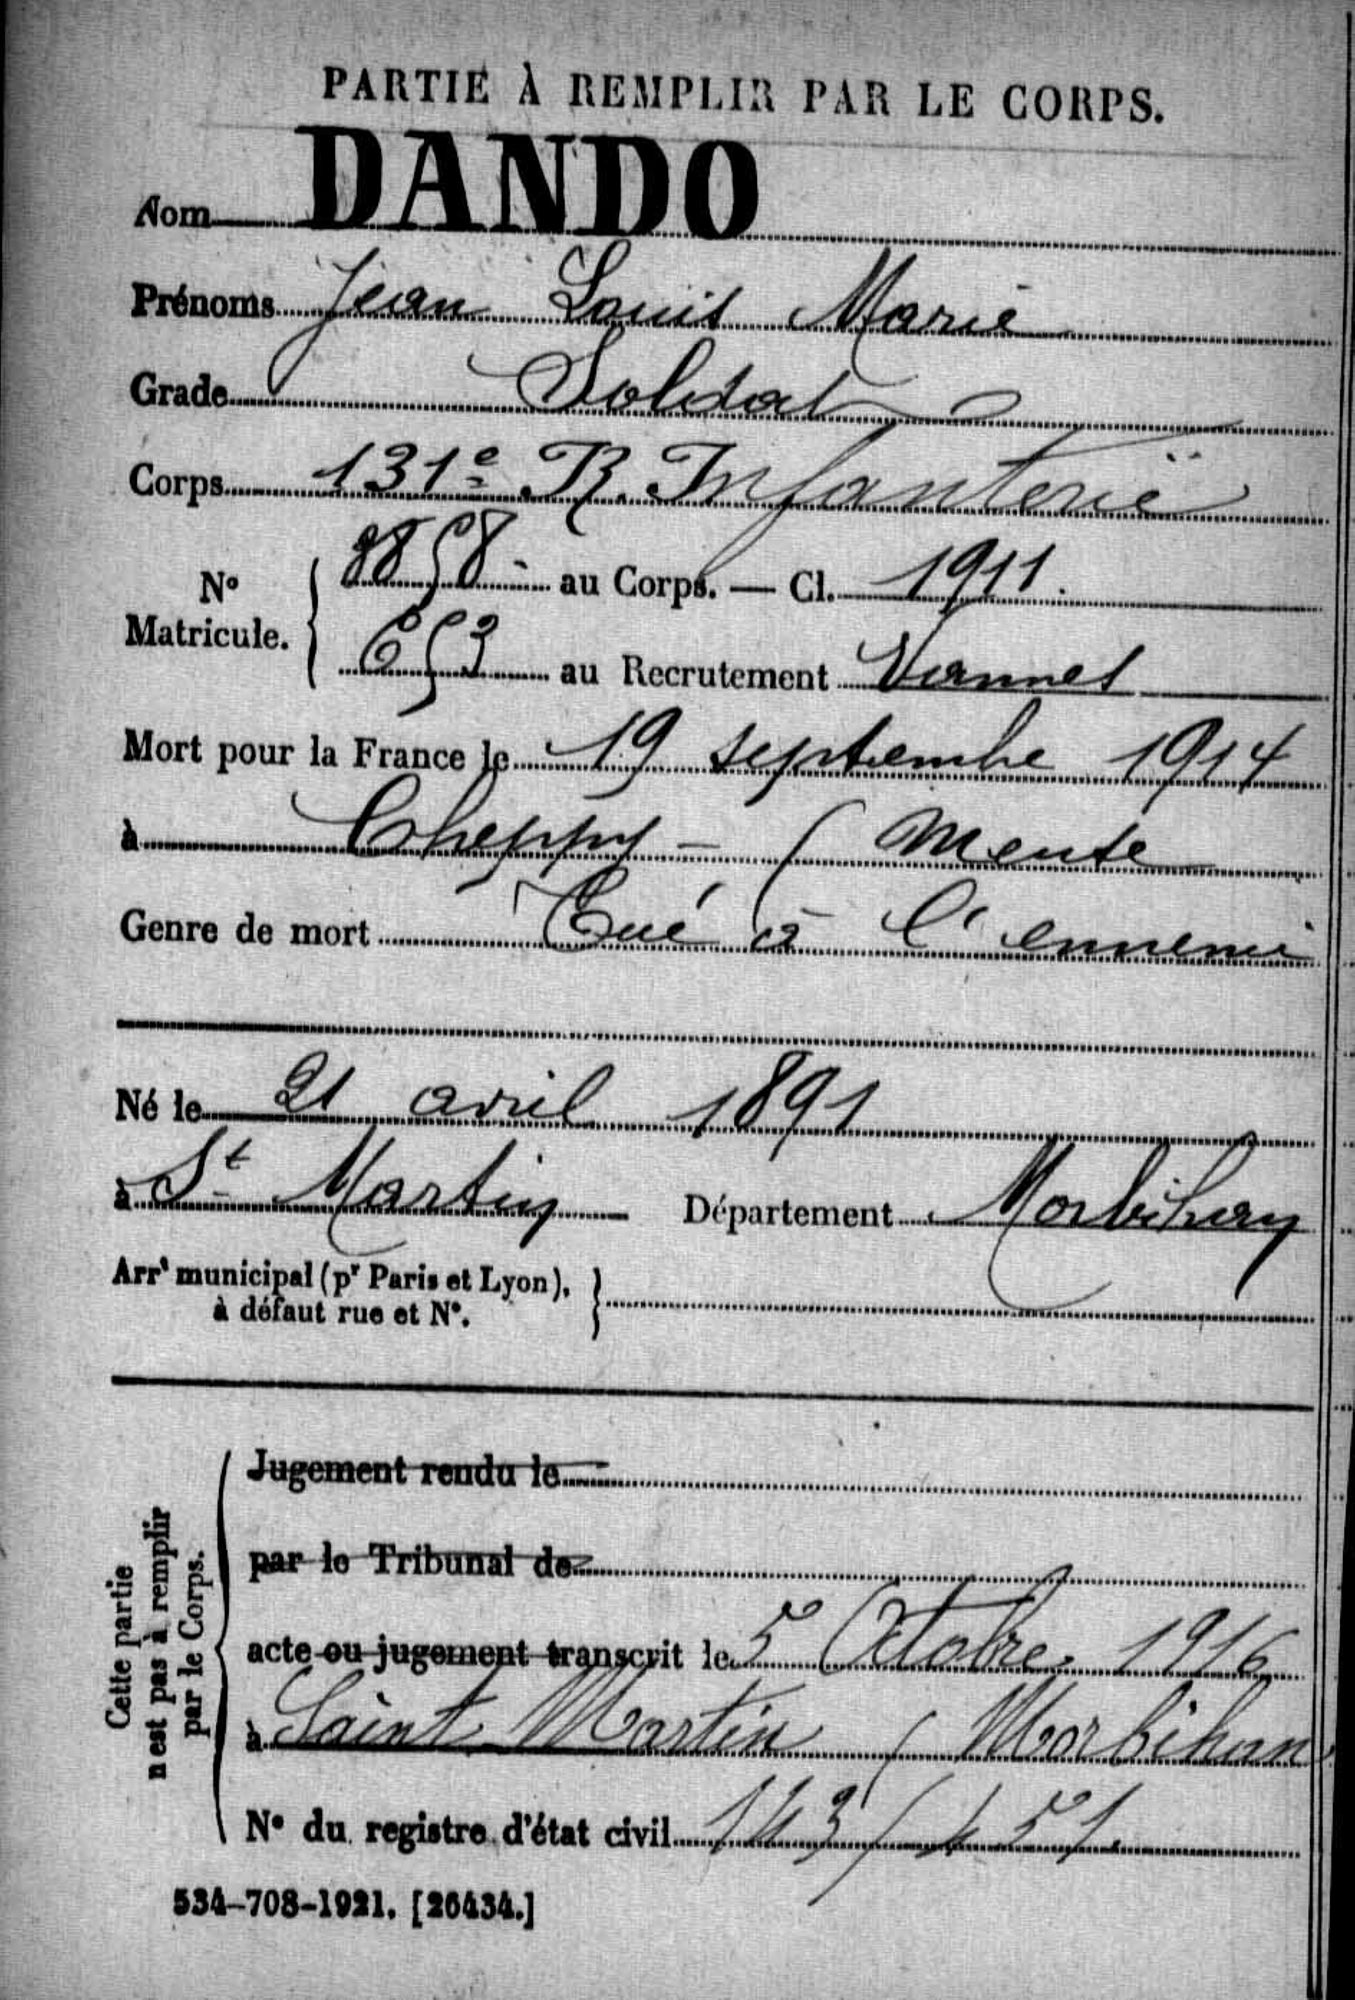 PARTIE À REMPLIR PAR LE CORPS.
Nom DANDO
Prénoms Jean Louis Marie
Grade Soldat
Corps 131e R. Infanterie
N° Matricule. { 8858 au Corps. — Cl. 1911.
653 au Recrutement Vannes
Mort pour la France le 19 septembre 1914
à Cheppy – (Meuse
Genre de mort Tué à l'ennemi
Né le 21 avril 1891
à St Martin Département Morbihan
Arrt municipal (pr Paris et Lyon), }
à défaut rue et N°.
Cette partie n'est pas à remplir par le Corps.
Jugement rendu le
par le Tribunal de
acte ou jugement transcrit le 5 Octobre 1916
à Saint Martin (Morbihan
N° du registre d'état civil 143/
534-708-1921. [26434.]